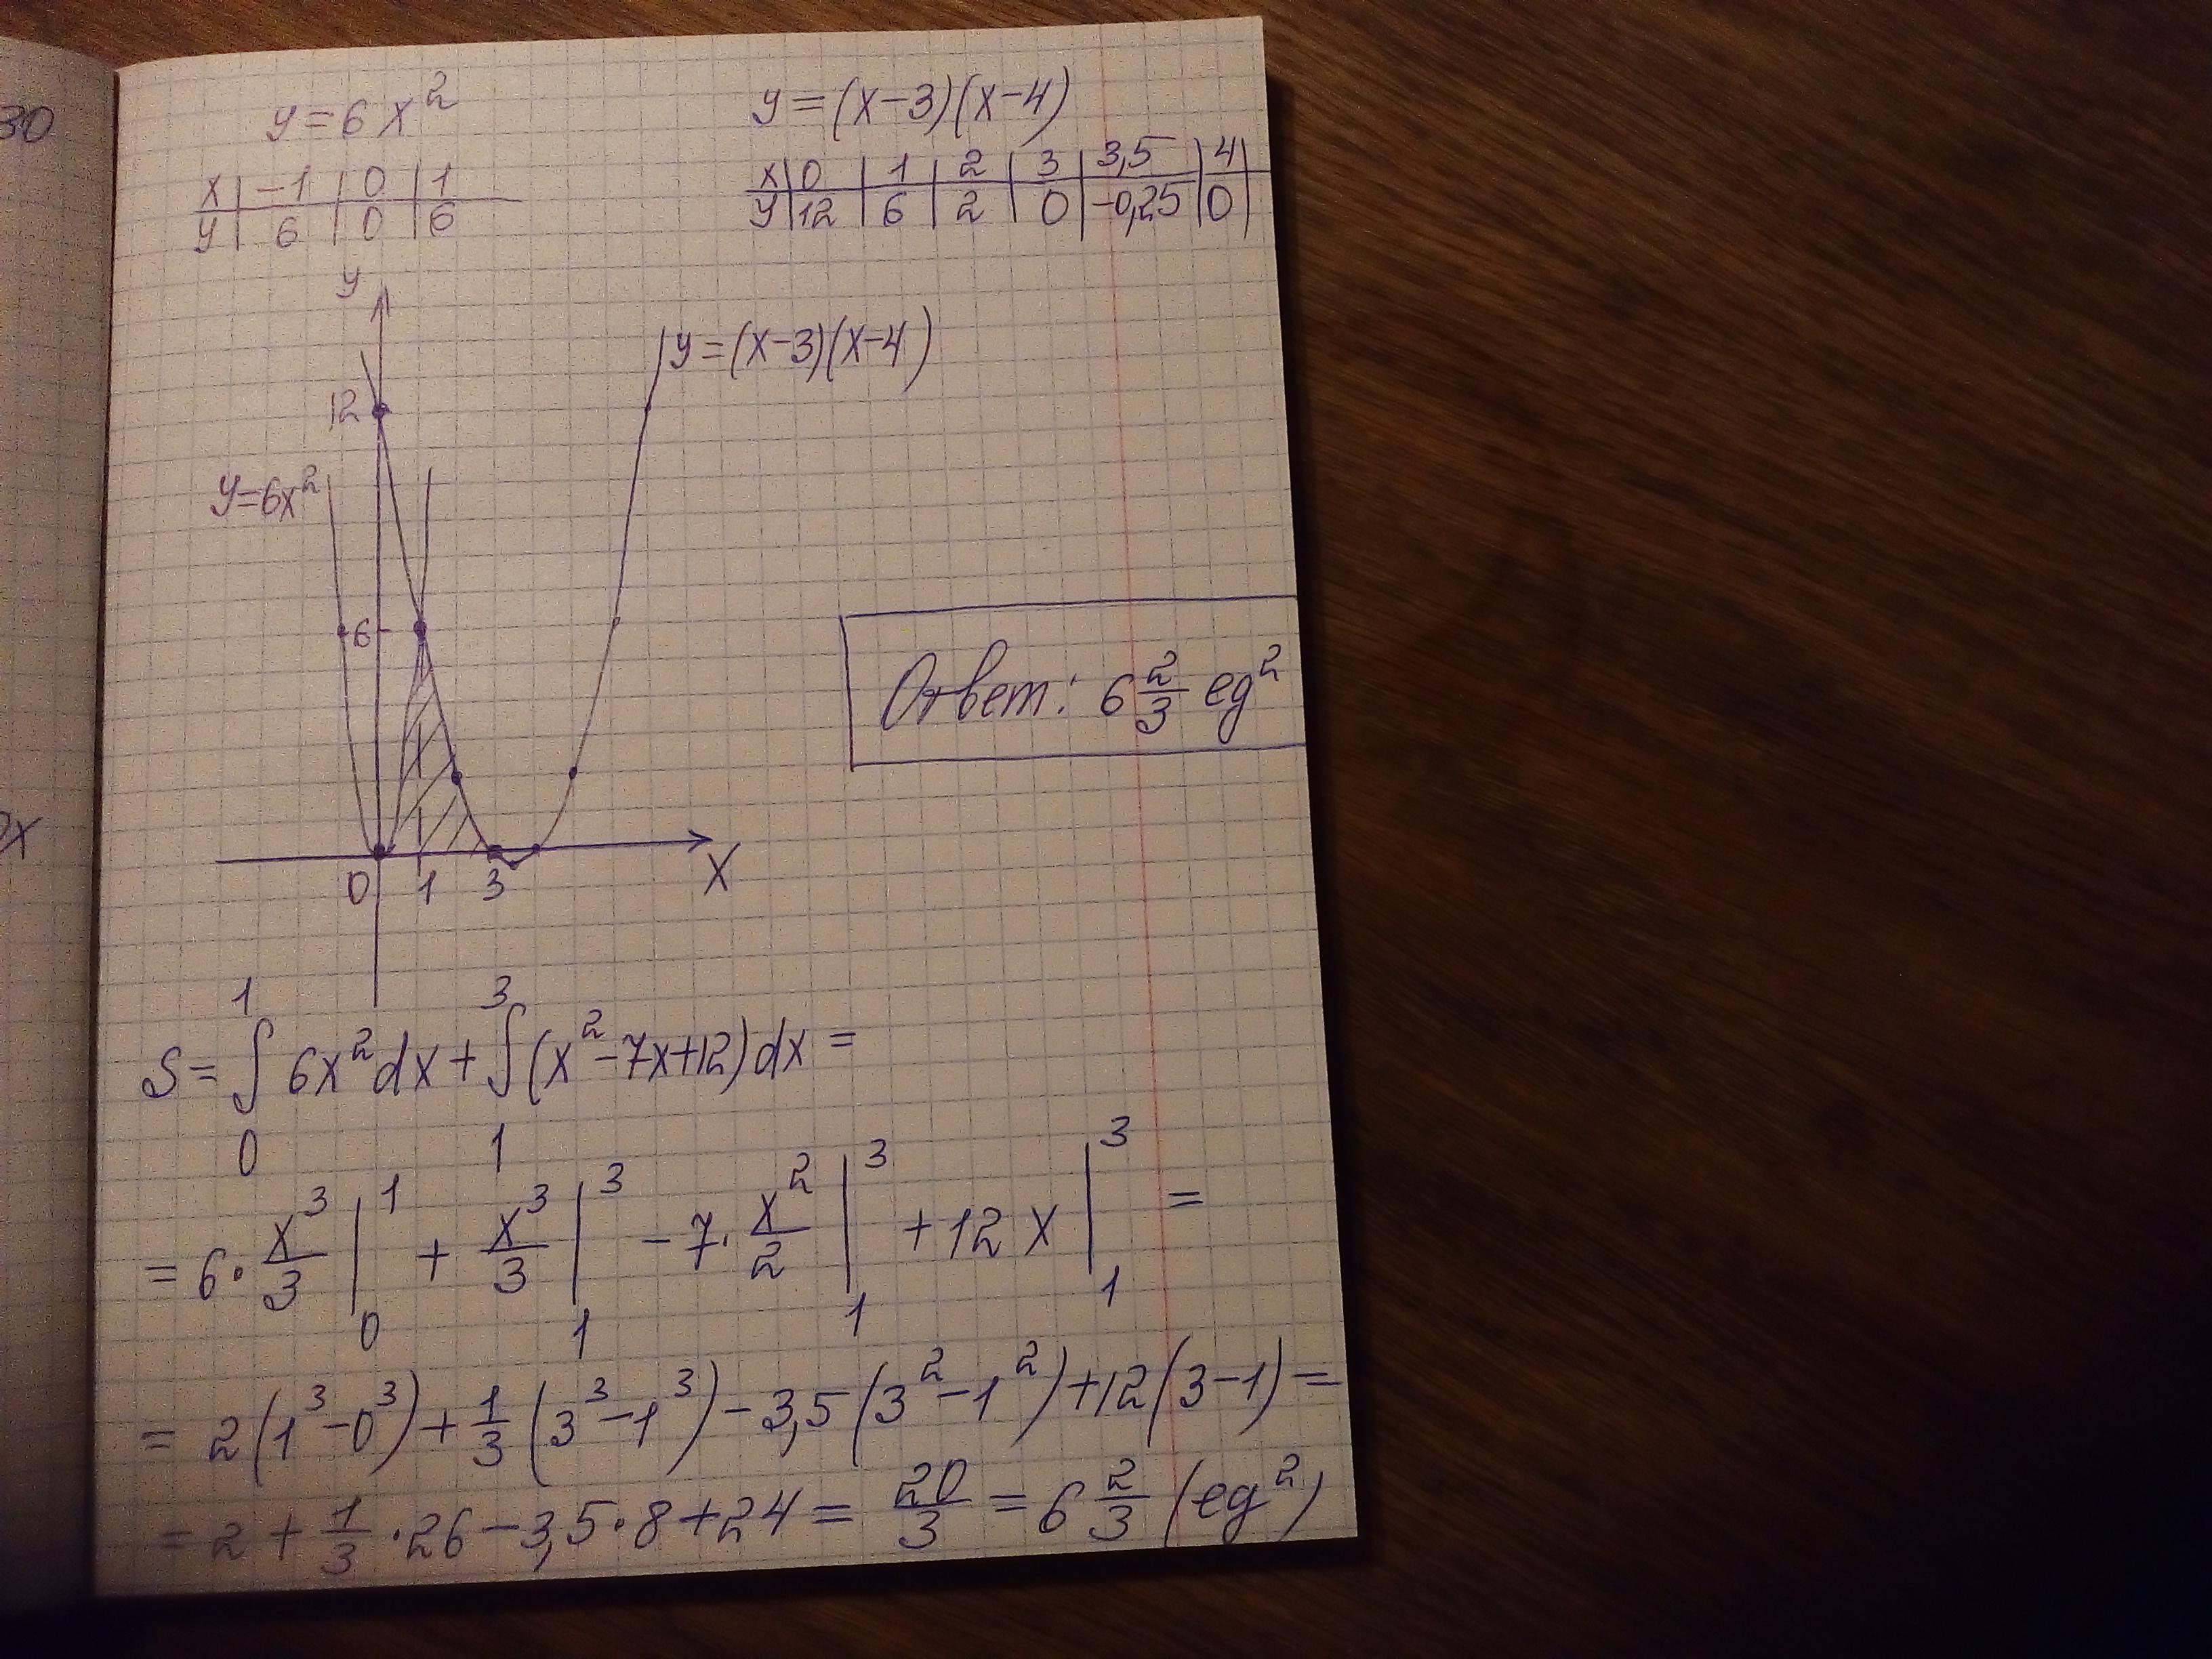 30
y=6x²
x | -1 | 0 | 1
y | 6 | 0 | 6
y=(x-3)(x-4)
x | 0 | 1 | 2 | 3 | 3,5 | 4
y | 12 | 6 | 2 | 0 | -0,25 | 0
y
y=(x-3)(x-4)
12
y=6x²
6
Ответ: 6 2/3 ед²
x
0 1 3
X
S = ∫₀¹ 6x²dx + ∫₁³ (x²-7x+12)dx =
= 6·x³/3 |₀¹ + x³/3 |₁³ - 7·x²/2 |₁³ + 12x |₁³ =
= 2(1³-0³) + 1/3(3³-1³) - 3,5(3²-1²) + 12(3-1) =
= 2 + 1/3·26 - 3,5·8 + 24 = 20/3 = 6 2/3 (ед²)